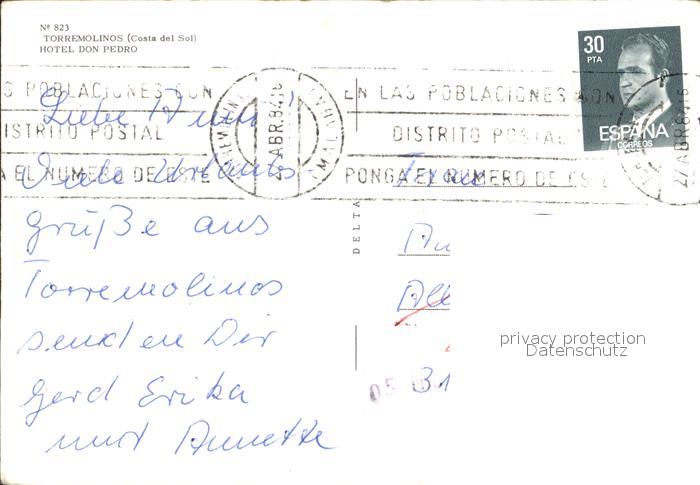 Nº 823
TORREMOLINOS (Costa del Sol)
HOTEL DON PEDRO
30
PTA
ESPAÑA
CORREOS
S POBLACIONES CON
ISTRITO POSTAL
A EL NUMERO DE ESTE
27 ABR. 84
EN LAS POBLACIONES CON
DISTRITO POSTAL
PONGA EL NUMERO DE ESTE
27 ABR. 84
Liebe
Viele Urlaubs
grüße aus
Torremolinos
senden Dir
Gerd Erika
und Annette
DELTA
Frau
An
All
31
05
privacy protection
Datenschutz